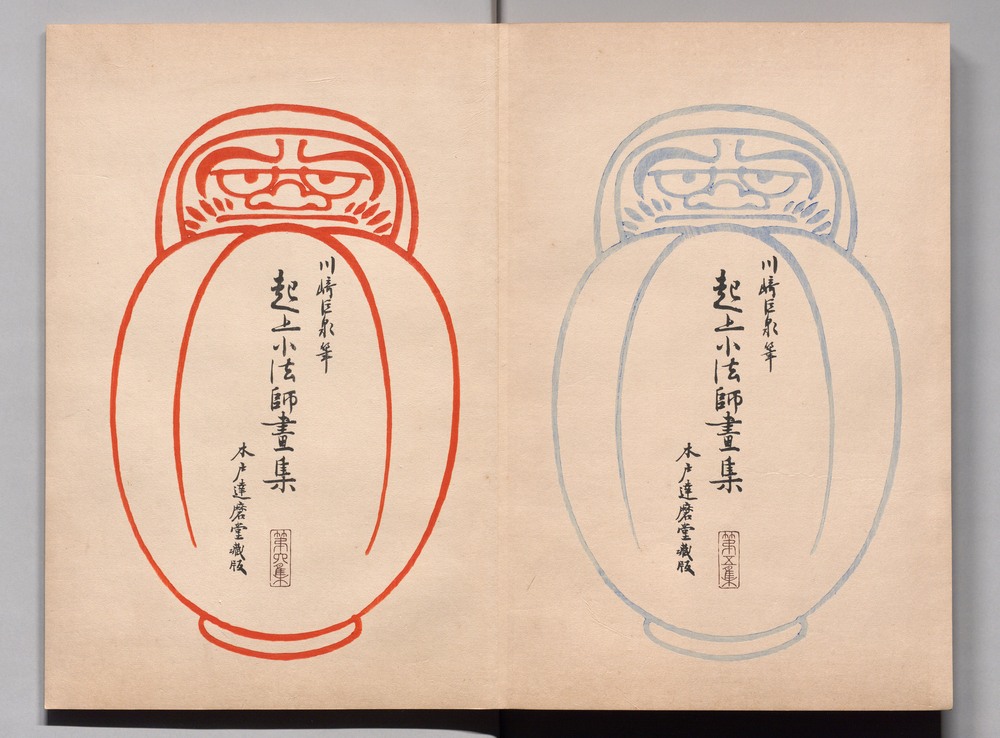 川﨑巨泉筆
起上小法師畫集
木戸達磨堂藏版
第五集
川﨑巨泉筆
起上小法師畫集
木戸達磨堂藏版
第六集